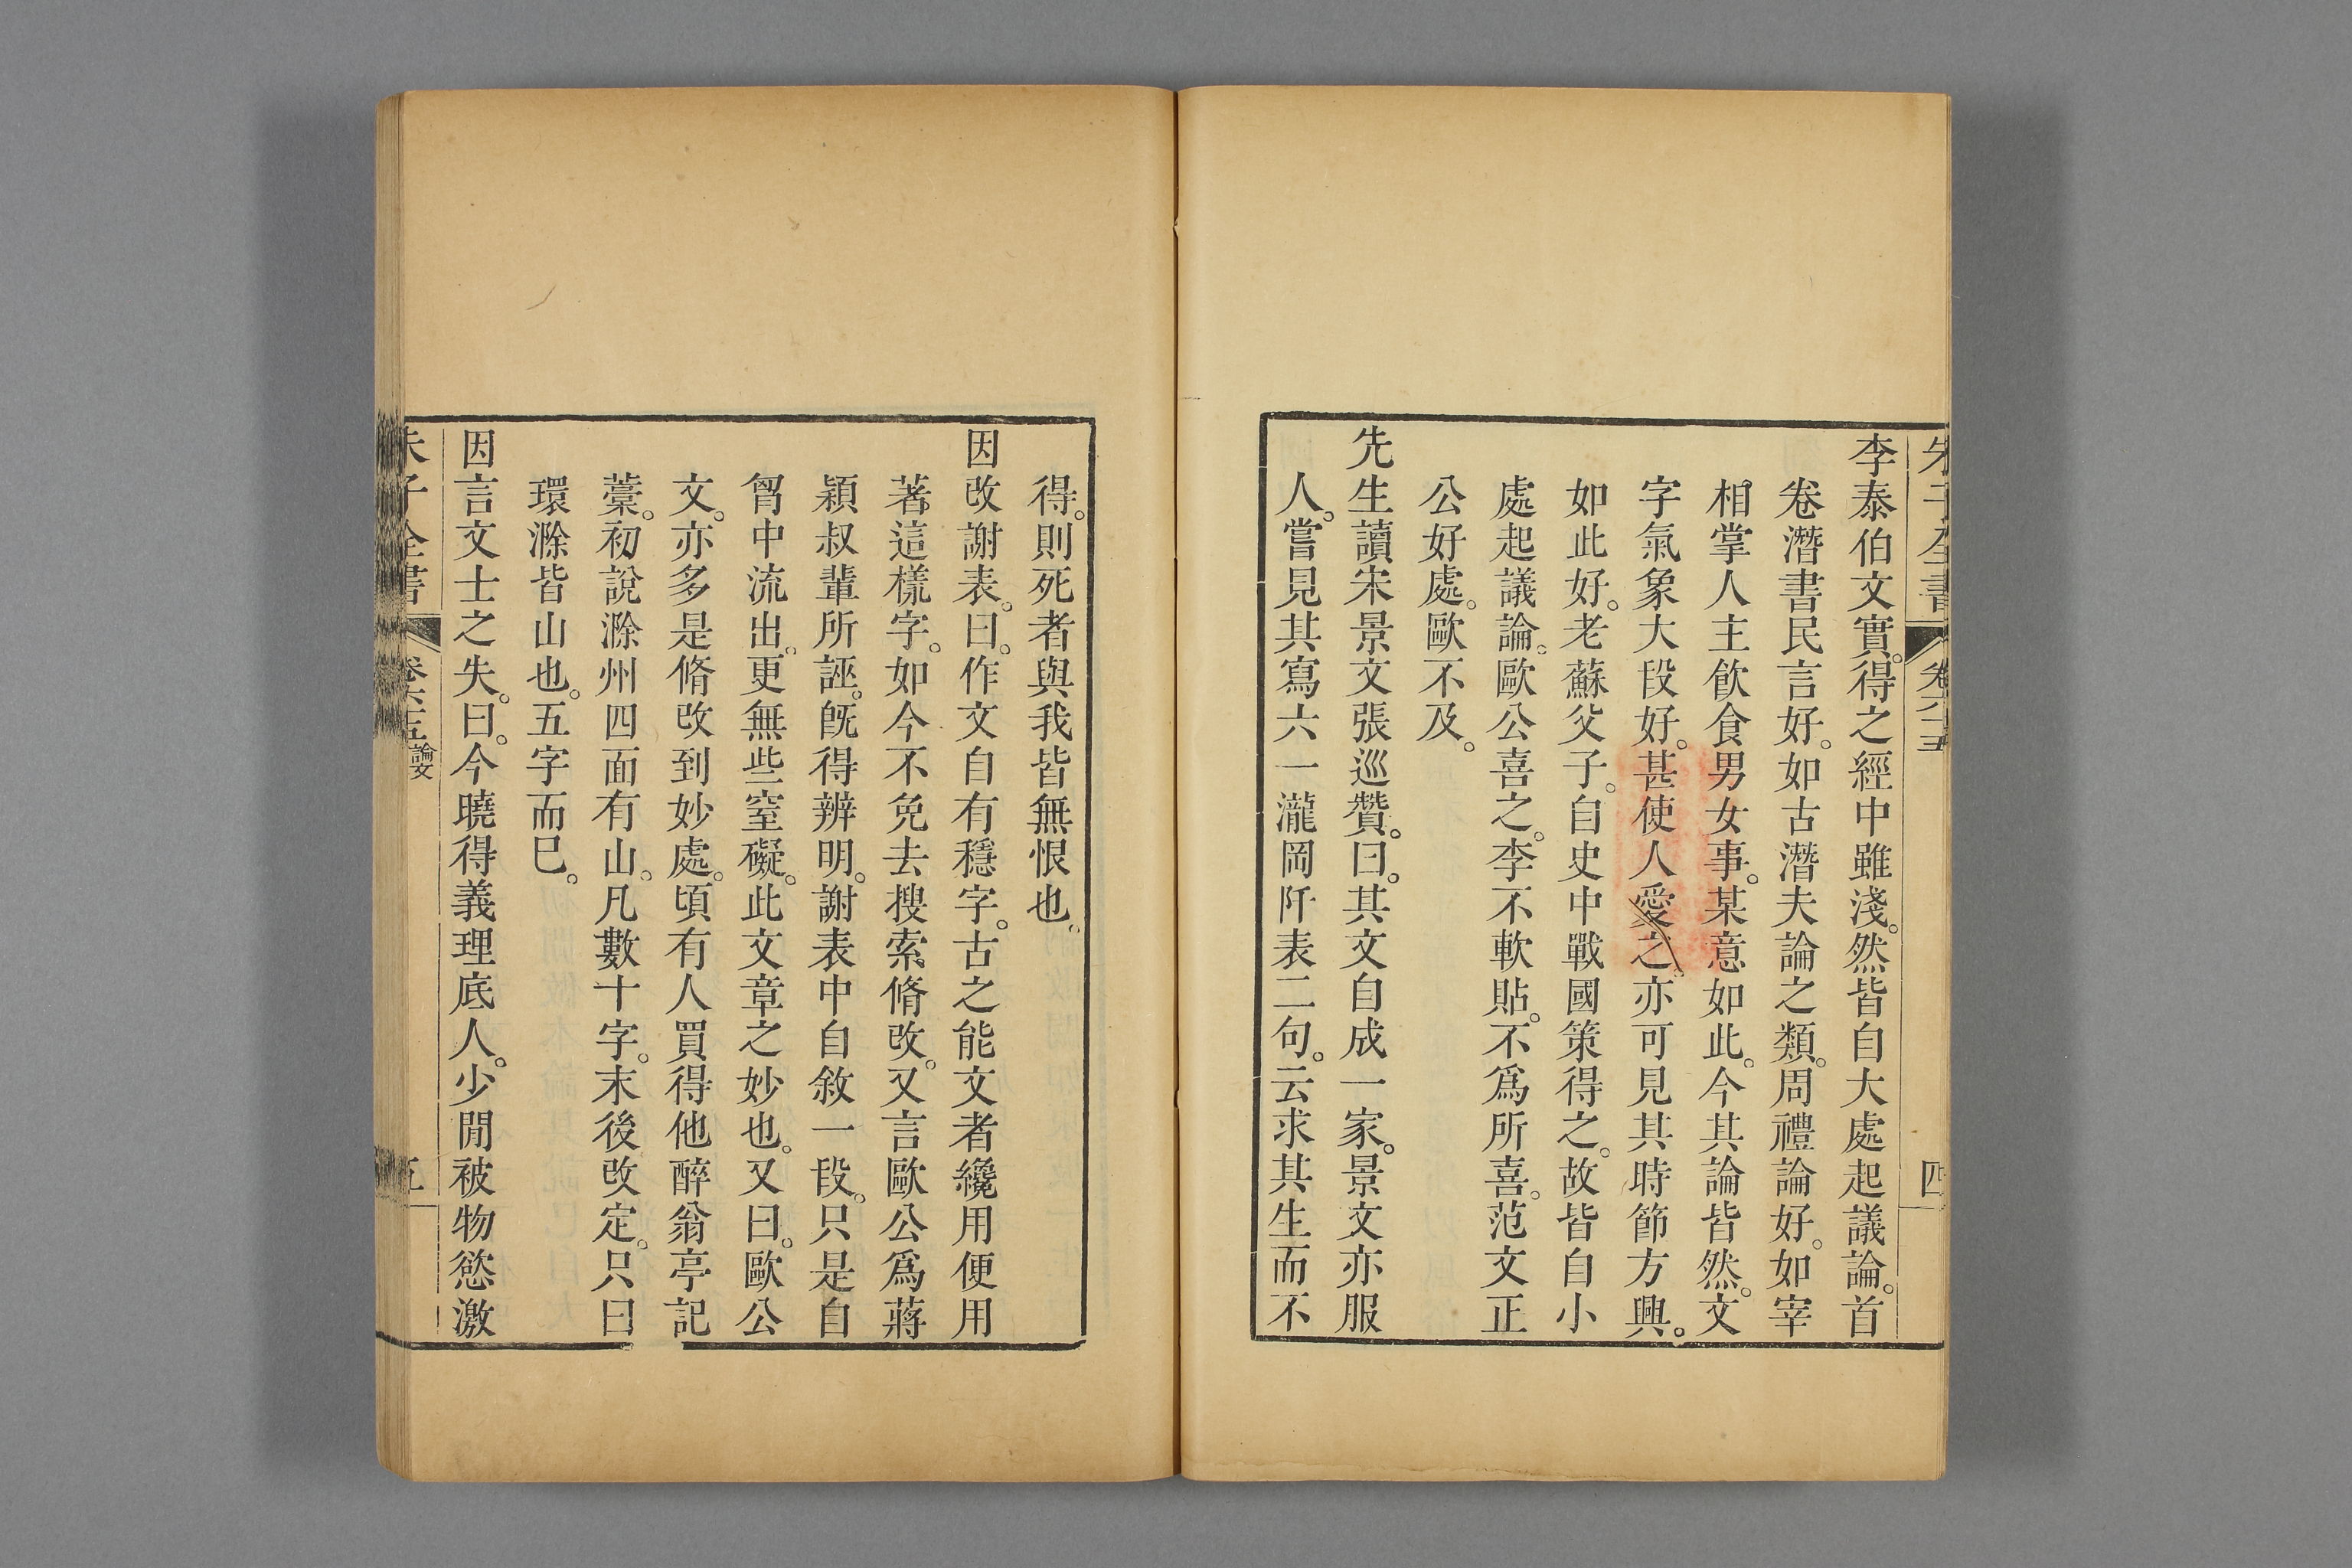 李泰伯文實得之經中雖淺。然皆自大處起議論。首
卷潛書民言好。如古潛夫論之類。周禮論好。如宰
相掌人主飲食男女事。某意如此。今其論皆然。文
字氣象大段好。甚使人愛之。亦可見其時節方興。
如此好。老蘇父子。自史中戰國策得之。故皆自小
處起議論。歐公喜之。李不軟貼。不爲所喜。范文正
公好處。歐不及。
先生讀宋景文張巡贊。曰。其文自成一家。景文亦服
人。嘗見其寫六一瀧岡阡表二句。云求其生而不
得。則死者與我皆無恨也。
因改謝表。曰。作文自有穩字。古之能文者纔用便用
著這樣字。如今不免去搜索脩改。又言歐公爲蔣
穎叔輩所誣。旣得辨明。謝表中自敘一段。只是自
胷中流出。更無些窒礙。此文章之妙也。又曰。歐公
文。亦多是脩改到妙處。頃有人買得他醉翁亭記
藁。初說滁州四面有山。凡數十字。末後改定。只曰
環滁皆山也。五字而已。
因言文士之失。曰。今曉得義理底人。少閒被物慾激
朱子全書
卷六十五
論文
四
五